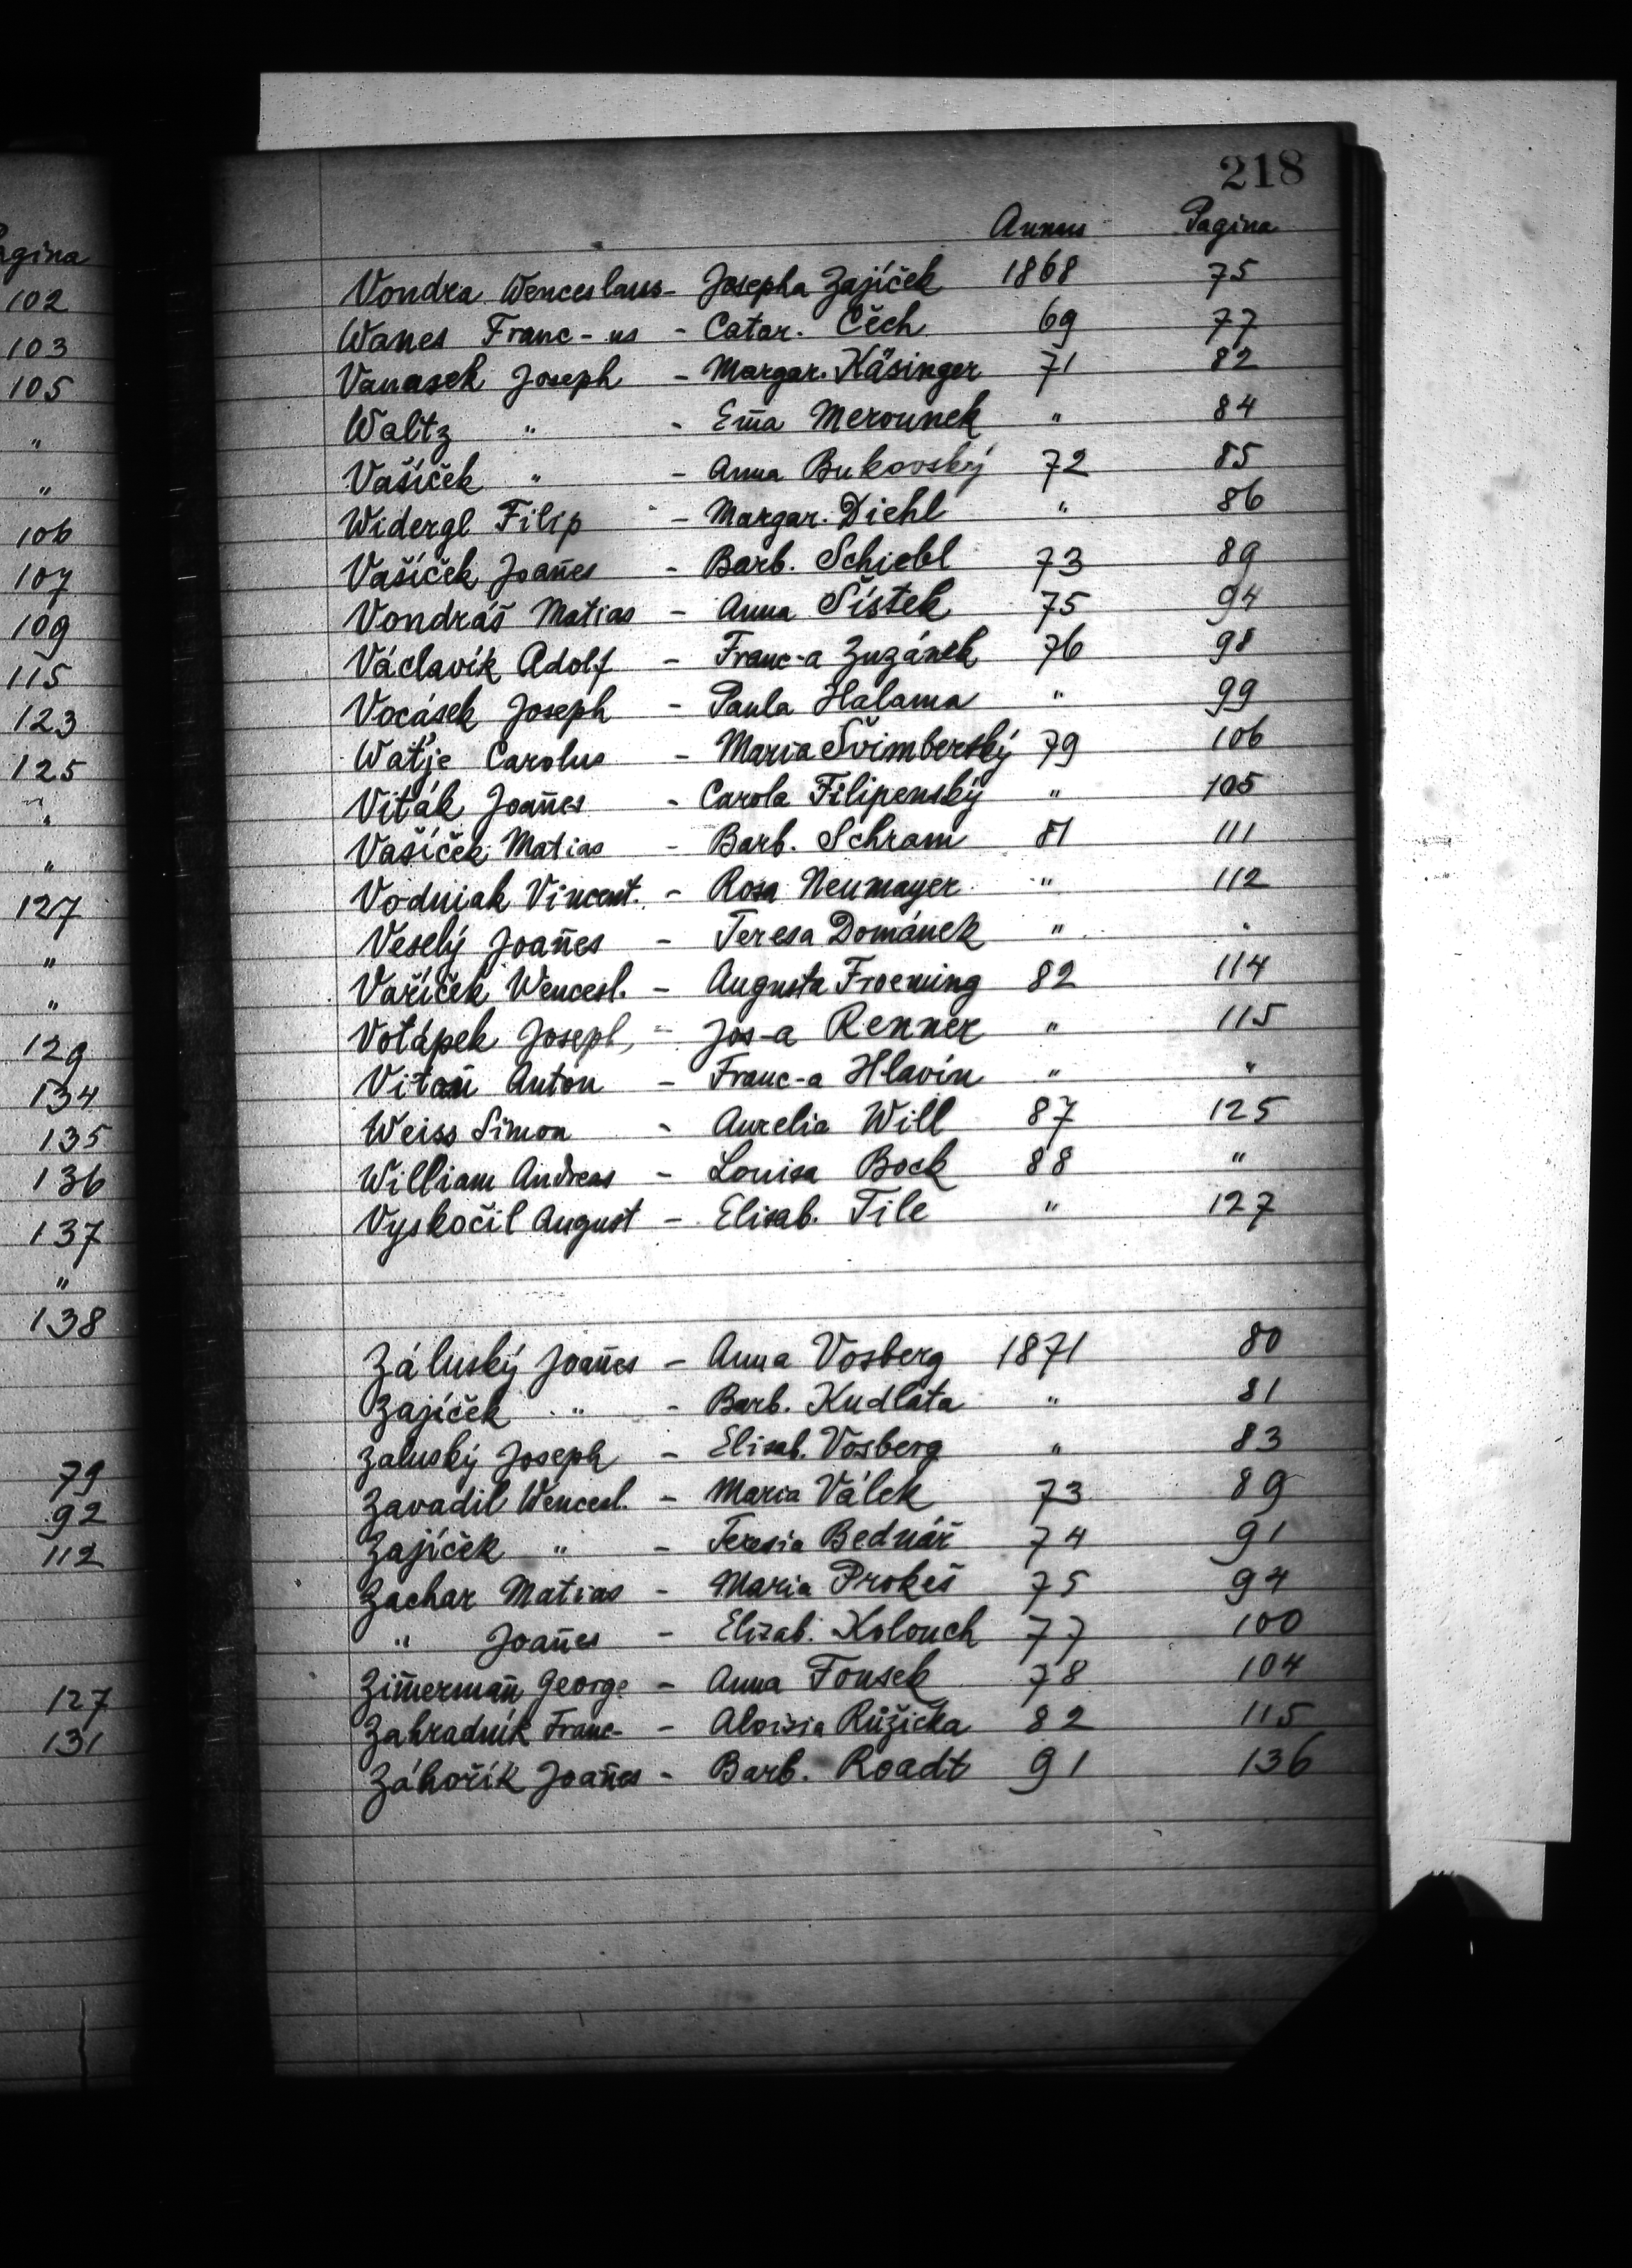 218
Annus Pagina
Vondra Wenceslaus - Josepha Zajíček 1868 75
Wanes Franc-us - Catar. Čěch 69 77
Vanasek Joseph - Margar. Käsinger 71 82
Waltz " - Em̄a Merounek " 84
Vašíček " - Anna Bukovský 72 85
Widergl Filip - Margar. Diehl " 86
Vašíček Joan̄es - Barb. Schiebl 73 89
Vondráš Matias - Anna Šístek 75 94
Václavík Adolf - Franc-a Zuzánek 76 98
Vocásek Joseph - Paula Halama " 99
Waťje Carolus - Maria Švimberský 79 106
Viták Joan̄es - Carola Filipenský " 105
Vašíček Matias - Barb. Schram 81 111
Vodniak Vincent. - Rosa Neumayer " 112
Veselý Joan̄es - Teresa Dománek " "
Vašíček Wencesl. - Augusta Froeming 82 114
Votápek Joseph, - Jos-a Renner " 115
Vitoň Anton - Franc-a Hlavín " "
Weiss Simon - Aurelia Will 87 125
William Andreas - Louisa Bock 88 "
Vyskočil August - Elisab. Tile " 127
Záluský Joan̄es - Anna Vosberg 1871 80
Zajíček " - Barb. Kudláta " 81
Zaluský Joseph - Elisab. Vosberg " 83
Zavadil Wencesl. - Maria Válek 73 89
Zajíček " - Teresia Bednář 74 91
Zachar Matias - Maria Prokeš 75 94
" Joan̄es - Elizab. Kolouch 77 100
Zim̄erman̄ George - Anna Fousek 78 104
Zahradník Franc- - Aloisia Růžička 82 115
Záhořík Joan̄es - Barb. Roadt 91 136
agina
102
103
105
"
"
106
107
109
115
123
125
"
"
127
"
"
129
134
135
136
137
"
138
79
92
112
127
131